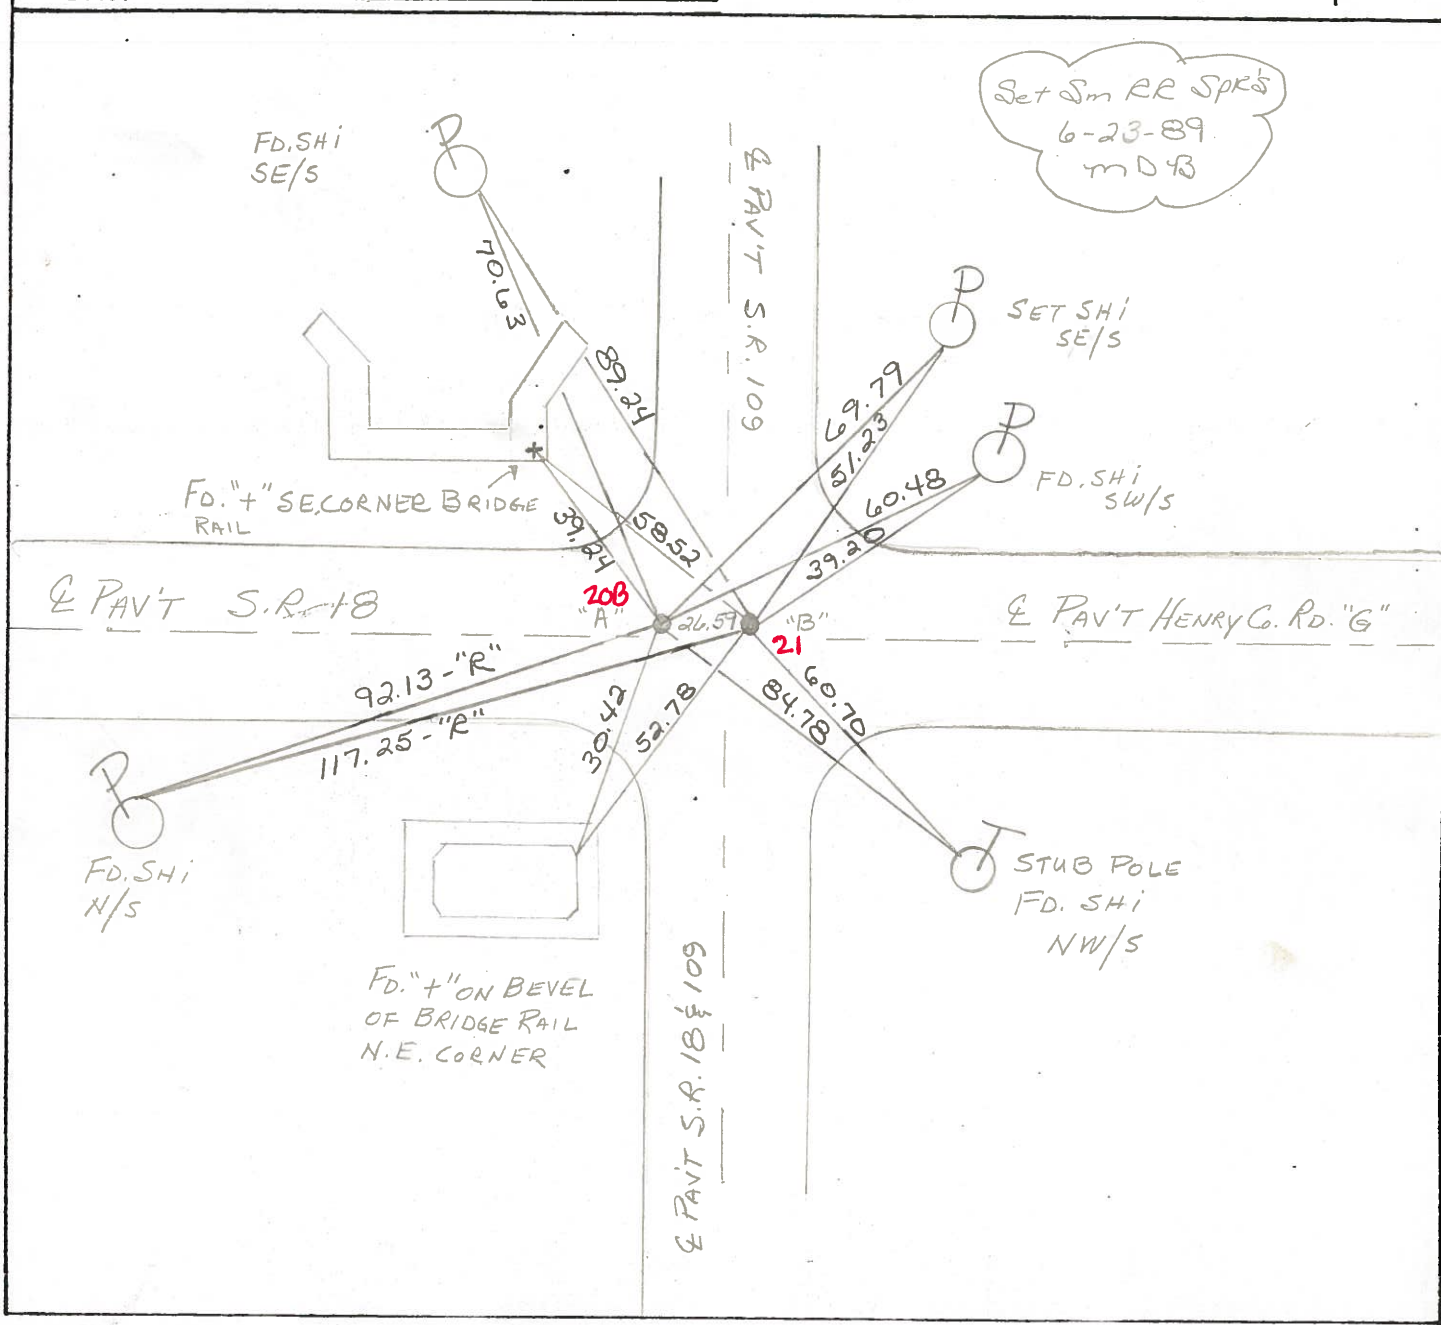 Set Sm RR Spk's
6-23-89
MDB
FD. SHi
SE/S
70.63
89.24
℄ PAV'T S.R. 109
SET SHi
SE/S
69.79
51.23
FD. SHi
SW/S
60.48
39.20
FD. "+" S.E. CORNER BRIDGE
RAIL
39.24
58.52
℄ PAV'T S.R. 18
20B
"A"
26.59
"B"
21
℄ PAV'T HENRY Co. RD. "G"
92.13-"R"
117.25-"R"
30.42
52.78
84.78
60.70
FD. SHi
N/S
STUB POLE
FD. SHi
NW/S
FD. "+" ON BEVEL
OF BRIDGE RAIL
N.E. CORNER
℄ PAV'T S.R. 18 & 109